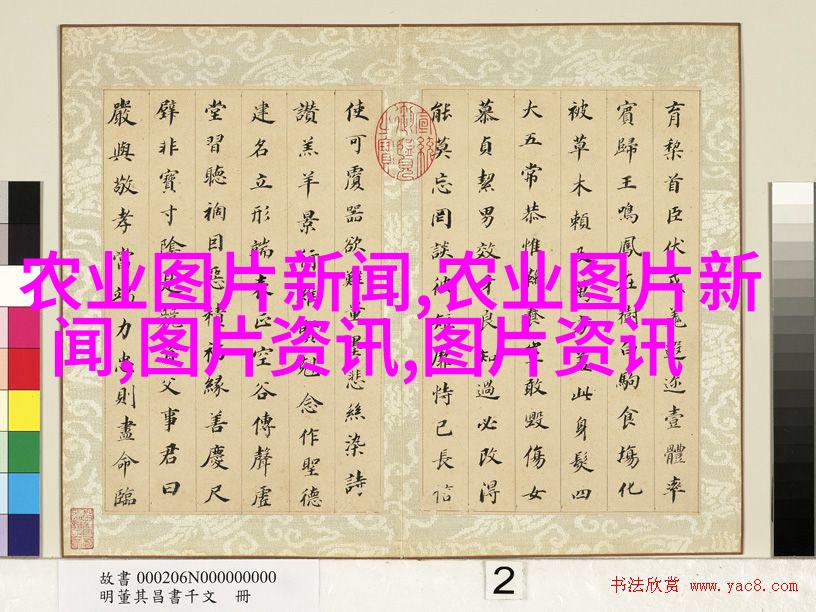 育梨首臣伏戎羌遐迩壹體率
賓歸王鳴鳳在樹白駒食場化
被草木賴及萬方蓋此身髮四
大五常恭惟鞠養豈敢毀傷女
慕貞絜男效才良知過必改得
能莫忘罔談彼短靡恃己長信
使可覆器欲難量墨悲絲染詩
讚羔羊景行維賢剋念作聖德
建名立形端表正空谷傳聲虛
堂習聽禍因惡積福緣善慶尺
璧非寶寸陰是競資父事君曰
嚴與敬孝當竭力忠則盡命臨
宣統御覽之寶
农业图片新闻,农业图片新
闻,图片资讯,图片资讯
故書 000206N000000000
明董其昌書千文 冊
2
书法欣赏 www.yac8.com